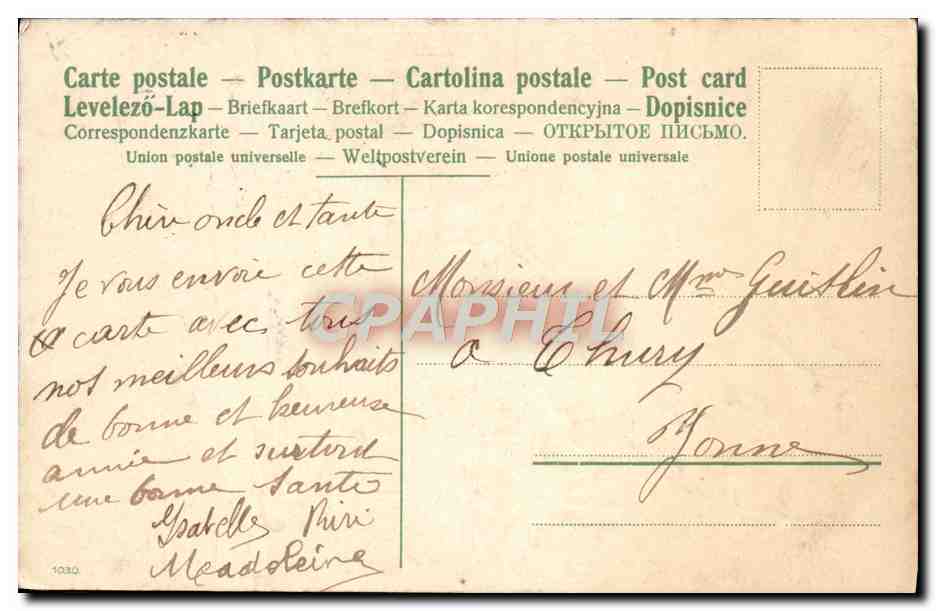 Carte postale — Postkarte — Cartolina postale — Post card
Levelező-Lap — Briefkaart — Brefkort — Karta korespondencyjna — Dopisnice
Correspondenzkarte — Tarjeta postal — Dopisnica — ОТКРЫТОЕ ПИСЬМО.
Union postale universelle — Weltpostverein — Unione postale universale
Chère oncle et tante
Je vous envoie cette
carte avec tous
nos meilleurs souhaits
de bonne et heureuse
année et surtout
une bonne santé
Isabelle Riri
Meadoleine
Monsieur et Mme
à Thury
Yonne
CPAPHIL
1030.